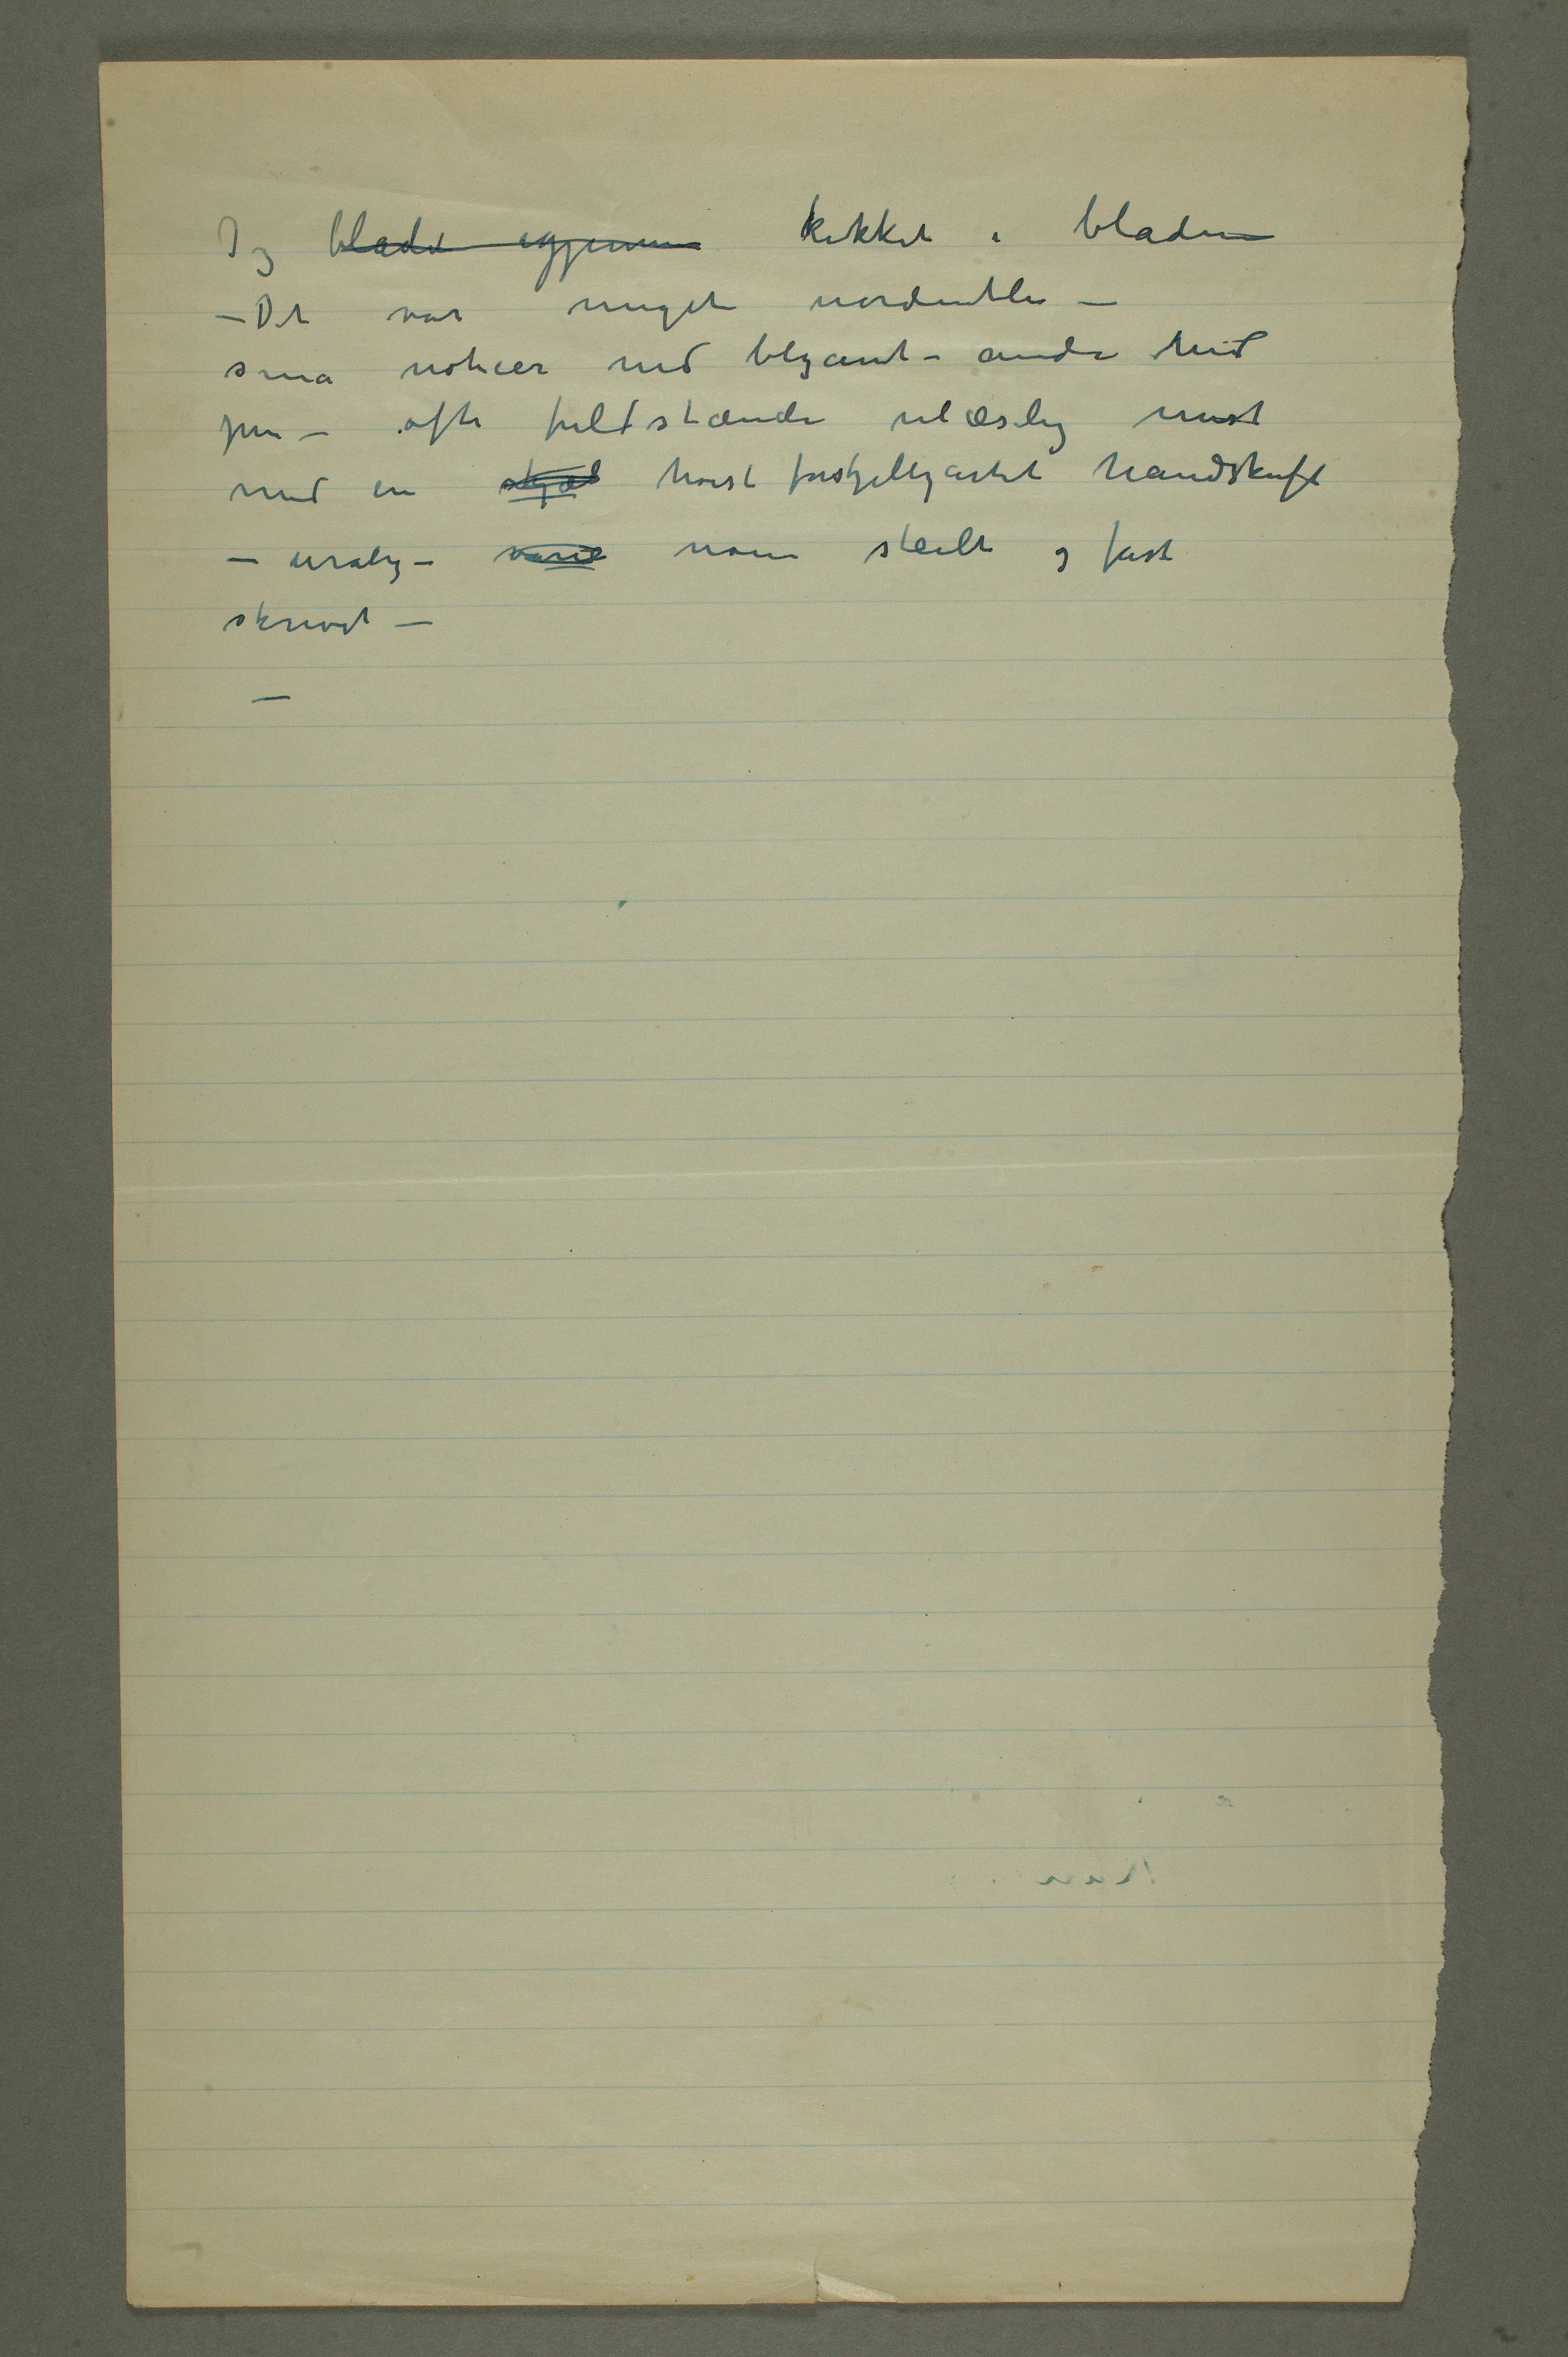 Jeg bladet igjennem kikket i bladene
– Det var meget uordentlig –
små noticer med blyant – andre med
pen – ofte fuldstændi ulæslig mest
med en høist forskjelligartet handskrift
– urolig – noen steilt og fast
skrevet –
–